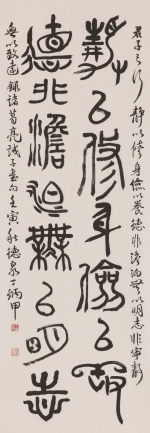 君子之行静以修身儉以養德非澹泊無以明志非寧静
静以修身儉以養
德非澹泊無以明志
無以致遠錄諸葛亮誡子書句壬寅秋德泉丁炳甲